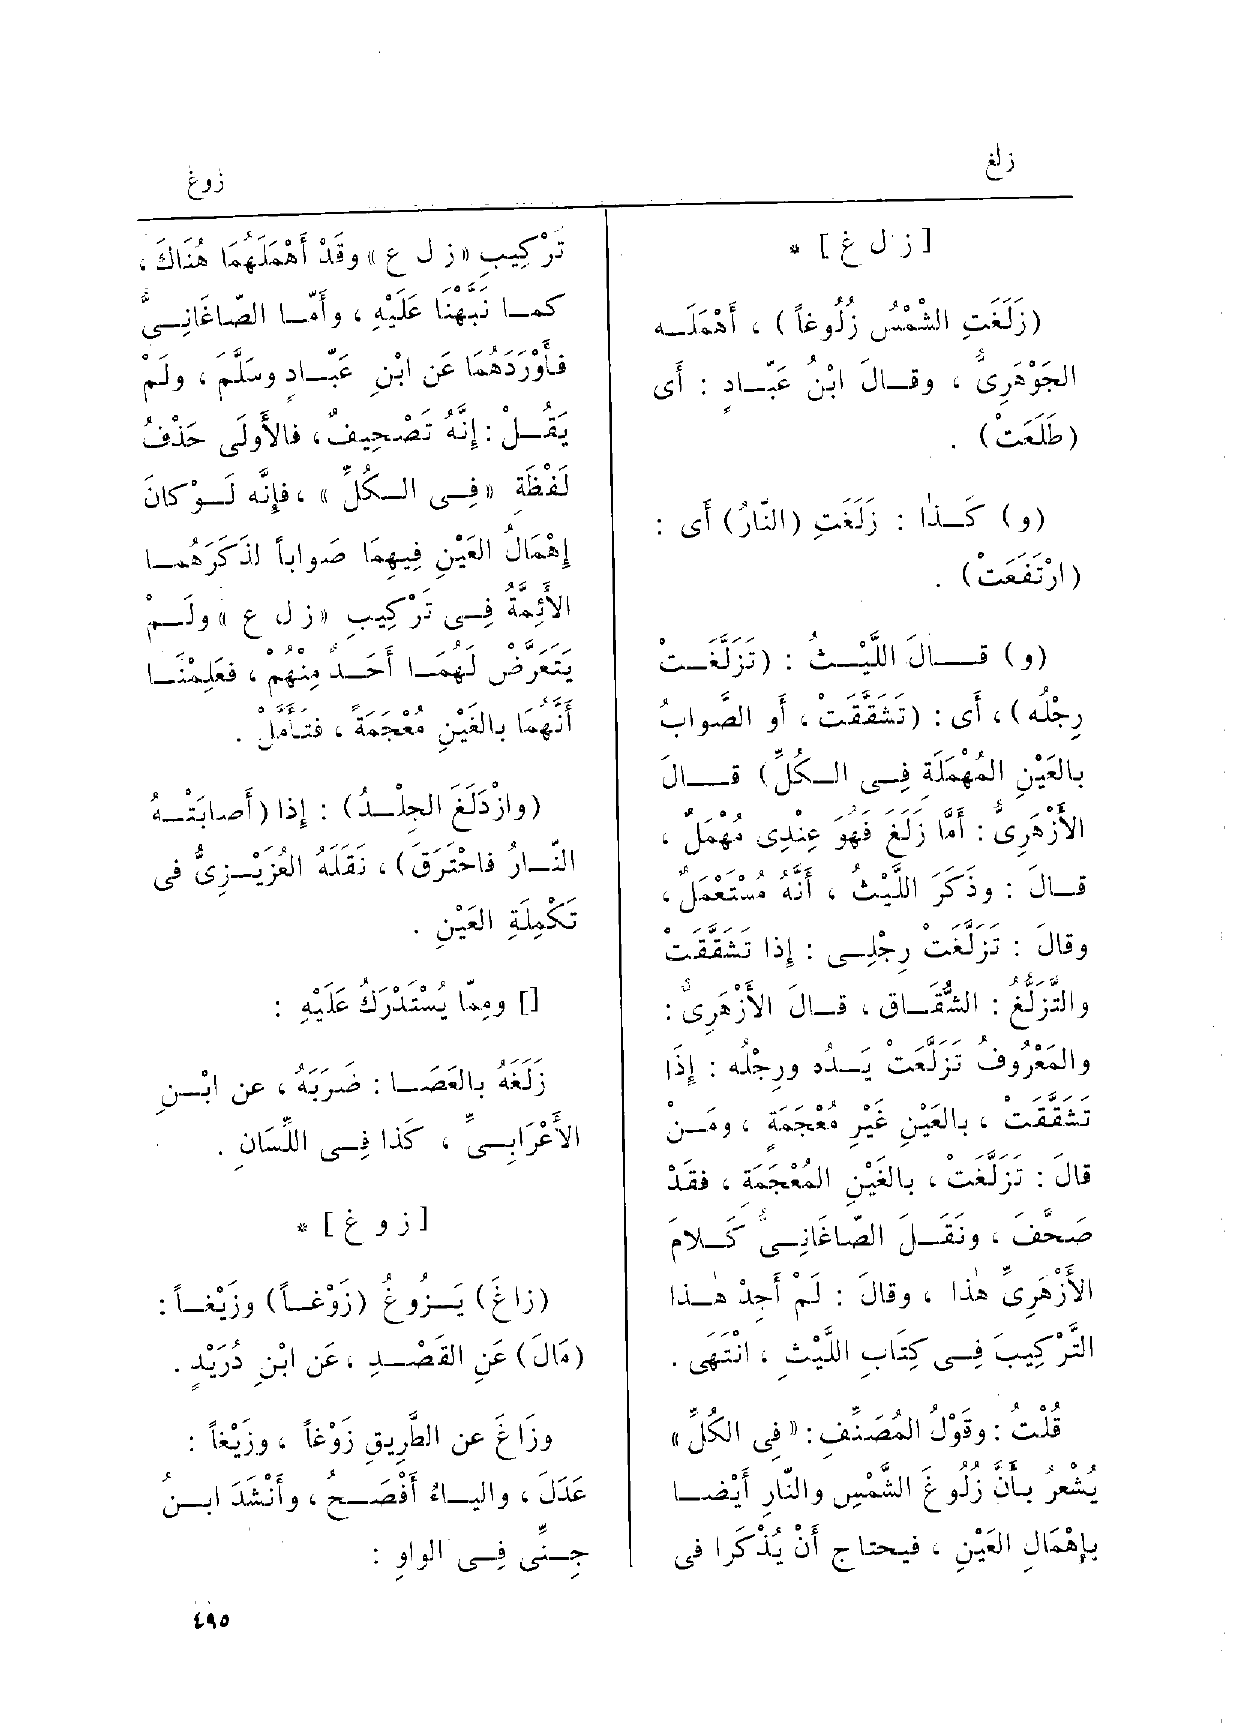 زلغ
زوغ
[ ز ل غ ] *
(زَلَغَتِ الشَّمْسُ زُلُوغاً) ، أَهْمَلَـه
الجَوْهَرِىُّ ، وقـالَ ابْنُ عَبّـادٍ : أَى
(طَلَعَتْ) .
(و) كَـذا : زَلَغَتِ (النّارُ) أَى :
(ارْتَفَعَتْ) .
(و) قـــالَ اللَّيْـثُ : (تَزَلَّغَـتْ
رِجْلُه) ، أَى : (تَشَقَّقَتْ ، أو الصَّوابُ
بالعَيْنِ المُهْمَلَةِ فِـى الـكُلِّ) قــالَ
الأَزْهَرِىُّ : أَمَّا زَلَغَ فهُوَ عِنْدِى مُهْمَلٌ ،
قـالَ : وذَكَرَ اللَّيْثُ ، أَنَّهُ مُسْتَعْمَلٌ ،
وقالَ : تَزَلَّغَتْ رِجْلِـى : إذا تَشَقَّقَتْ
والتَّزَلُّغُ : الشُّقَـاق ، قـالَ الأَزْهَرِىُّ :
والمَعْرُوفُ تَزَلَّعَتْ يَـدُه ورِجْلُه : إِذَا
تَشَقَّقَتْ ، بالعَيْنِ غَيْرِ مُعْجَمَةٍ ، ومَـنْ
قالَ : تَزَلَّغَتْ ، بالغَيْنِ المُعْجَمَة ، فقَدْ
صَحَّفَ ، ونَقَـلَ الصّاغَانِـىُّ كَـلامَ
الأَزْهَرِىِّ هٰذا ، وقالَ : لَمْ أَجِدْ هـٰذا
التَّرْكِيبَ فِـى كِتَابِ اللَّيْثِ ، انْتَهَى .
قُلْتُ : وقَوْلُ المُصَنِّفِ : «فِى الكُلِّ»
يُشْعِرُ بـأَنَّ زُلُوغَ الشَّمْسِ والنّارِ أَيْضـا
بإِهْمَالِ العَيْنِ ، فيحتاج أَنْ يُذْكَرا فى
تَرْكِيبِ «ز ل ع» وقَدْ أَهْمَلَهُمَا هُنَاكَ ،
كمـا نَبَّهْنَا عَلَيْهِ ، وأَمّـا الصّاغَانِـىُّ
فـأَوْرَدَهُمَا عَن ابْنِ عَبّـادٍ وسَلَّم ، ولَمْ
يَقُـلْ : إنَّهُ تَصْحِيفٌ ، فالأَولَى حَذْفُ
لَفْظَةِ «فِـى الـكُلِّ» ، فإِنَّه لَـوْ كانَ
إِهْمَالُ العَيْنِ فِيهِمَا صَواباً لذَكَرَهُمـا
الأَئِمَّةُ فِـى تَرْكِيبِ «ز ل ع» ولَـمْ
يَتَعَرَّضْ لَهُمَـا أَحَـدٌ مِنْهُمْ ، فعَلِمْنَـا
أَنَّهُمَا بالغَيْنِ مُعْجَمَةً ، فتَـأَمَّلْ .
(وازْدَلَغَ الجِلْـدُ) : إذا (أَصابَتْـهُ
النّـارُ فاحْتَرَقَ) ، نَقَلَهُ العُزَيْـزِىُّ فى
تَكْمِلَةِ العَيْنِ .
[] ومِمّا يُسْتَدْرَكُ عَلَيْهِ :
زَلَغَهُ بالعَصَـا : ضَرَبَهُ ، عن ابْـنِ
الأَعْرَابِـىِّ ، كَذا فِـى اللِّسَانِ .
[ ز و غ ] *
(زاغَ) يَـزُوغُ (زَوْغـاً) وزَيْغـاً :
(مَالَ) عَنِ القَصْـدِ ، عَن ابْنِ دُرَيْدٍ .
وزَاغَ عن الطَّرِيقِ زَوْغاً ، وزَيْغاً :
عَدَلَ ، واليـاءُ أَفْصَـحُ ، وأَنْشَدَ ابـنُ
جِـنِّى فِـى الواوِ :
٤٩٥